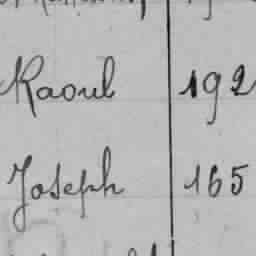 Raoul 192
Joseph 165